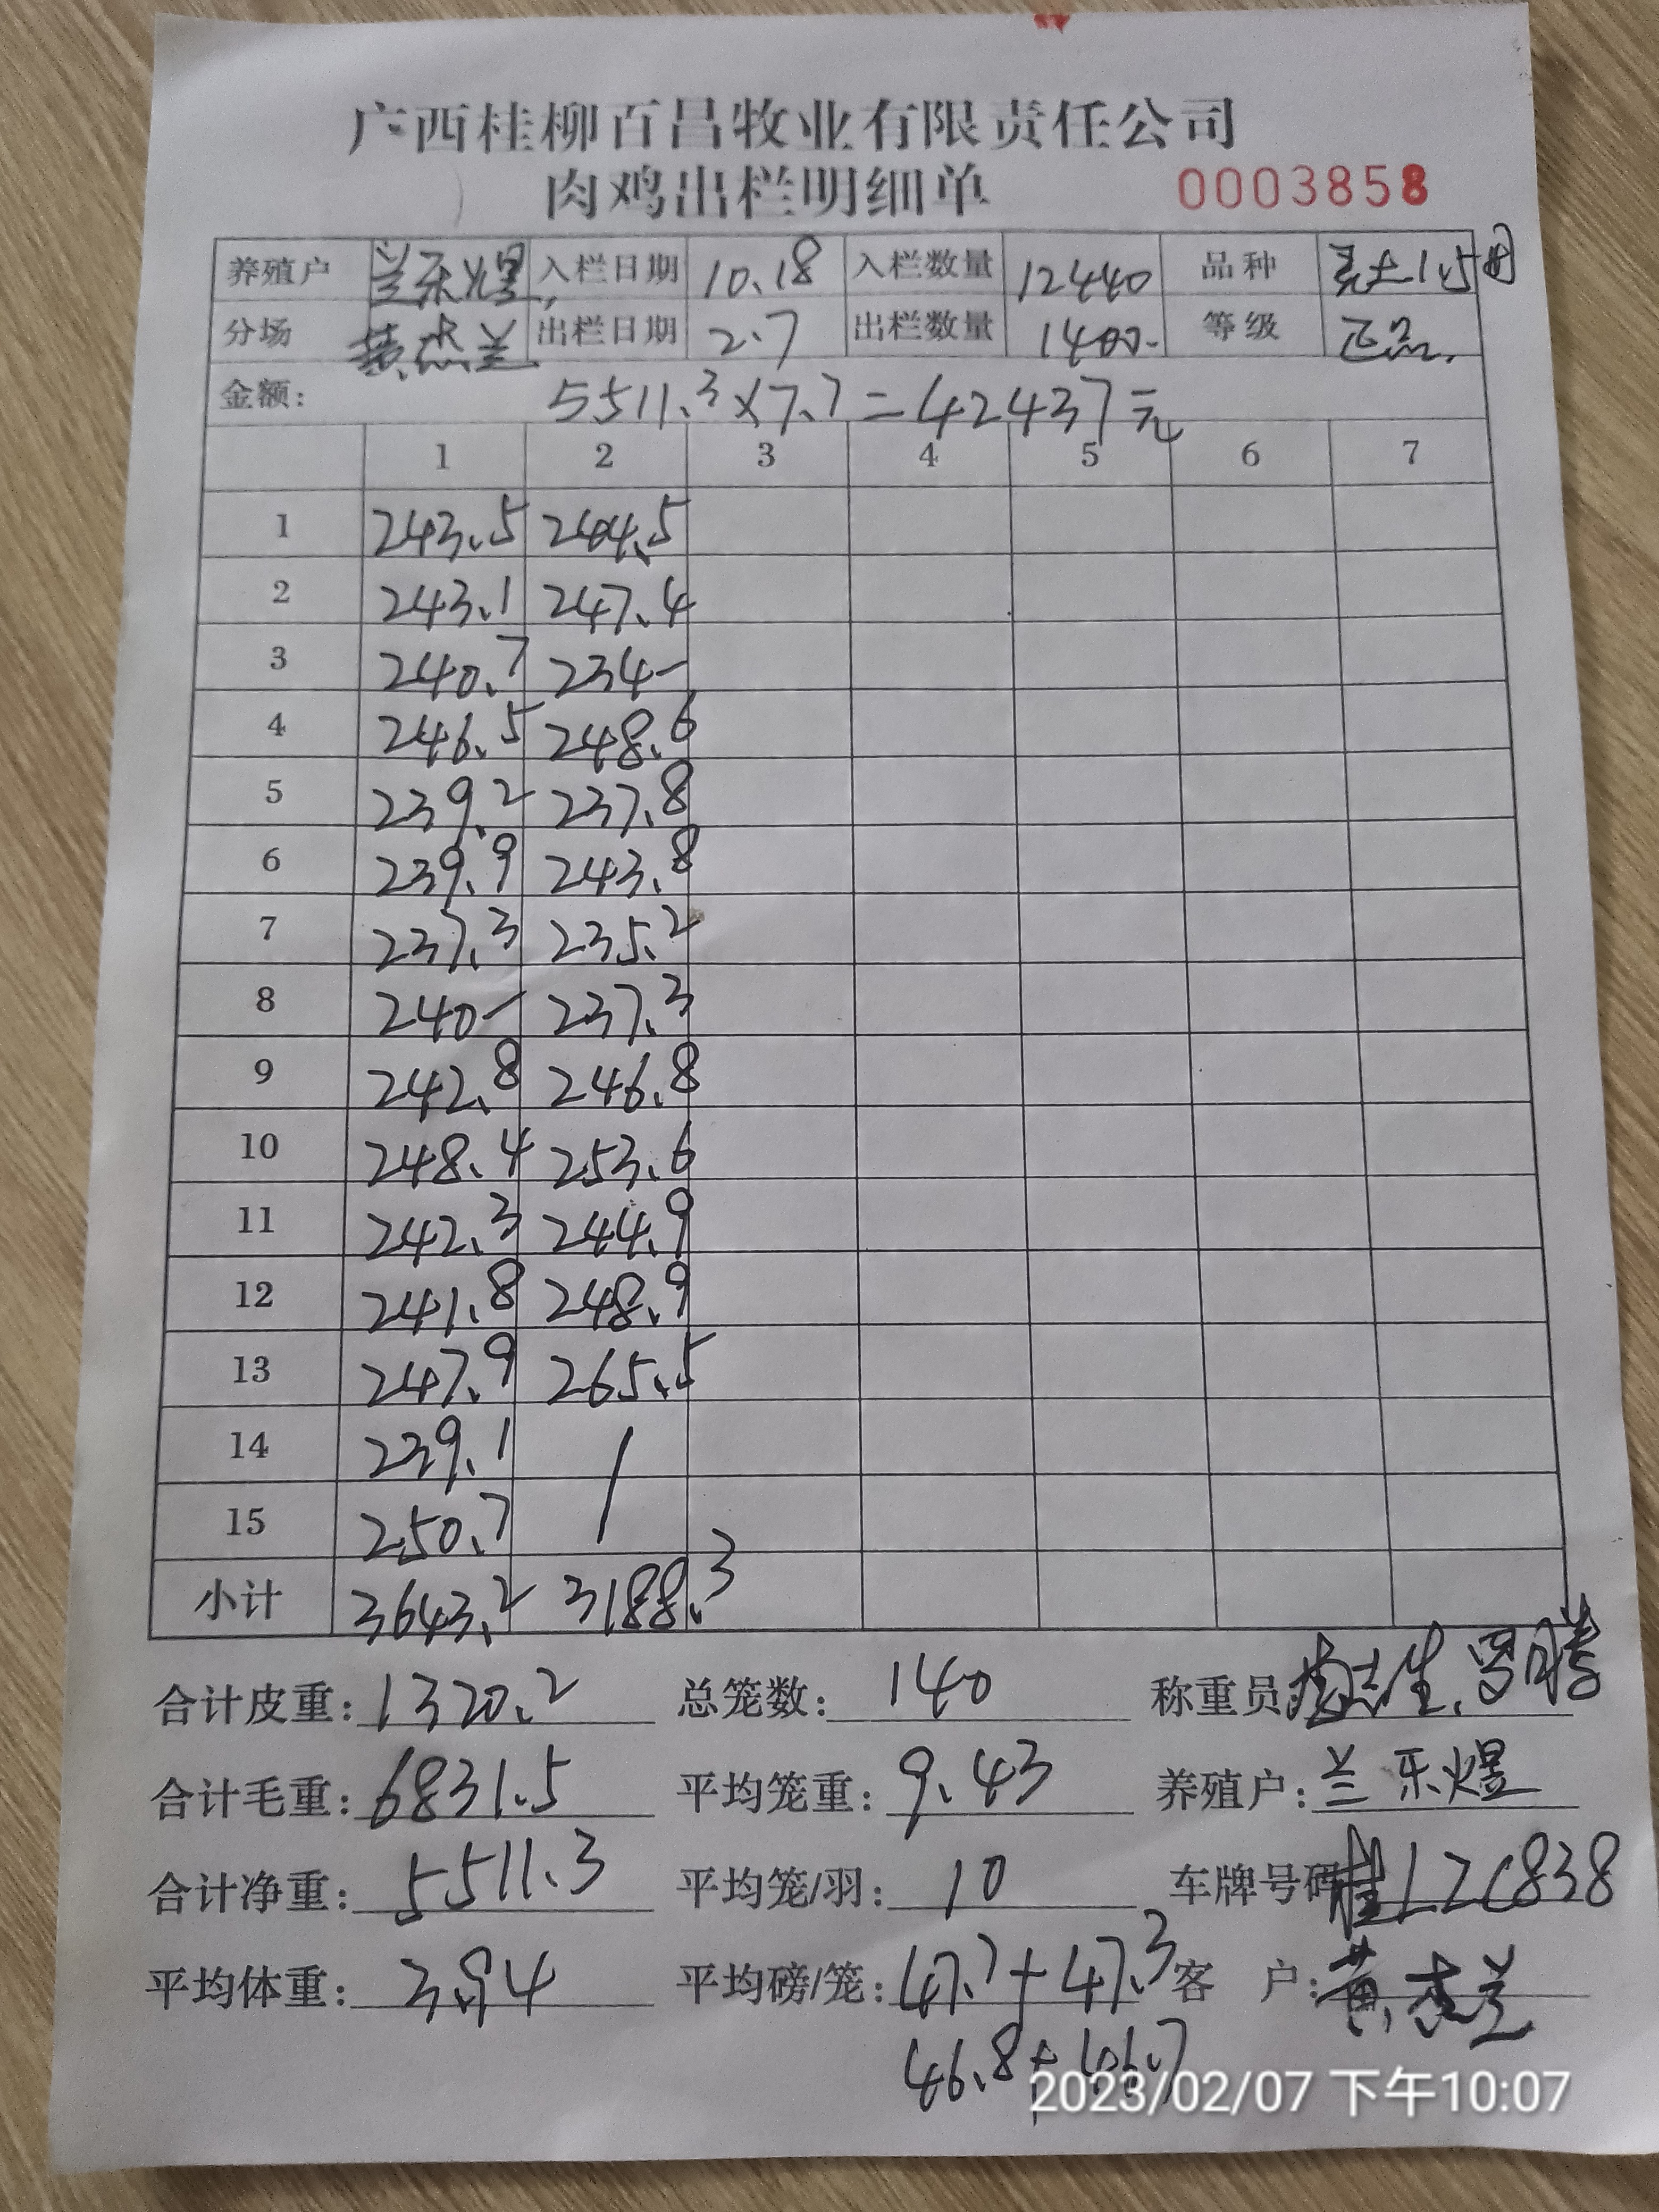 广西桂柳百昌牧业有限责任公司
肉鸡出栏明细单 0003858
养殖户 兰乐煜 入栏日期 10.18 入栏数量 12440 品种
分场 出栏日期 2.7 出栏数量 1400- 等级 正品.
金额: 5511.3×7.7=42437元
1 2 3 4 5 6 7
1 243.5 244.5
2 243.1 247.4
3 240.7 234-
4 246.5 248.6
5 239.2 237.8
6 239.9 243.8
7 237.3 235.2
8 240- 237.3
9 242.8 246.8
10 248.4 253.6
11 242.3 244.9
12 241.8 248.9
13 247.9 265.5
14 239.1 /
15 250.7
小计 3643.2 3188.3
合计皮重: 1320.2 总笼数: 140 称重员
合计毛重: 6831.5 平均笼重: 9.43 养殖户: 兰乐煜
合计净重: 5511.3 平均笼/羽: 10 车牌号码 桂LZC838
平均体重: 3.94 平均磅/笼: 47.7+47.3 客 户:
46.8+46.7
2023/02/07 下午10:07